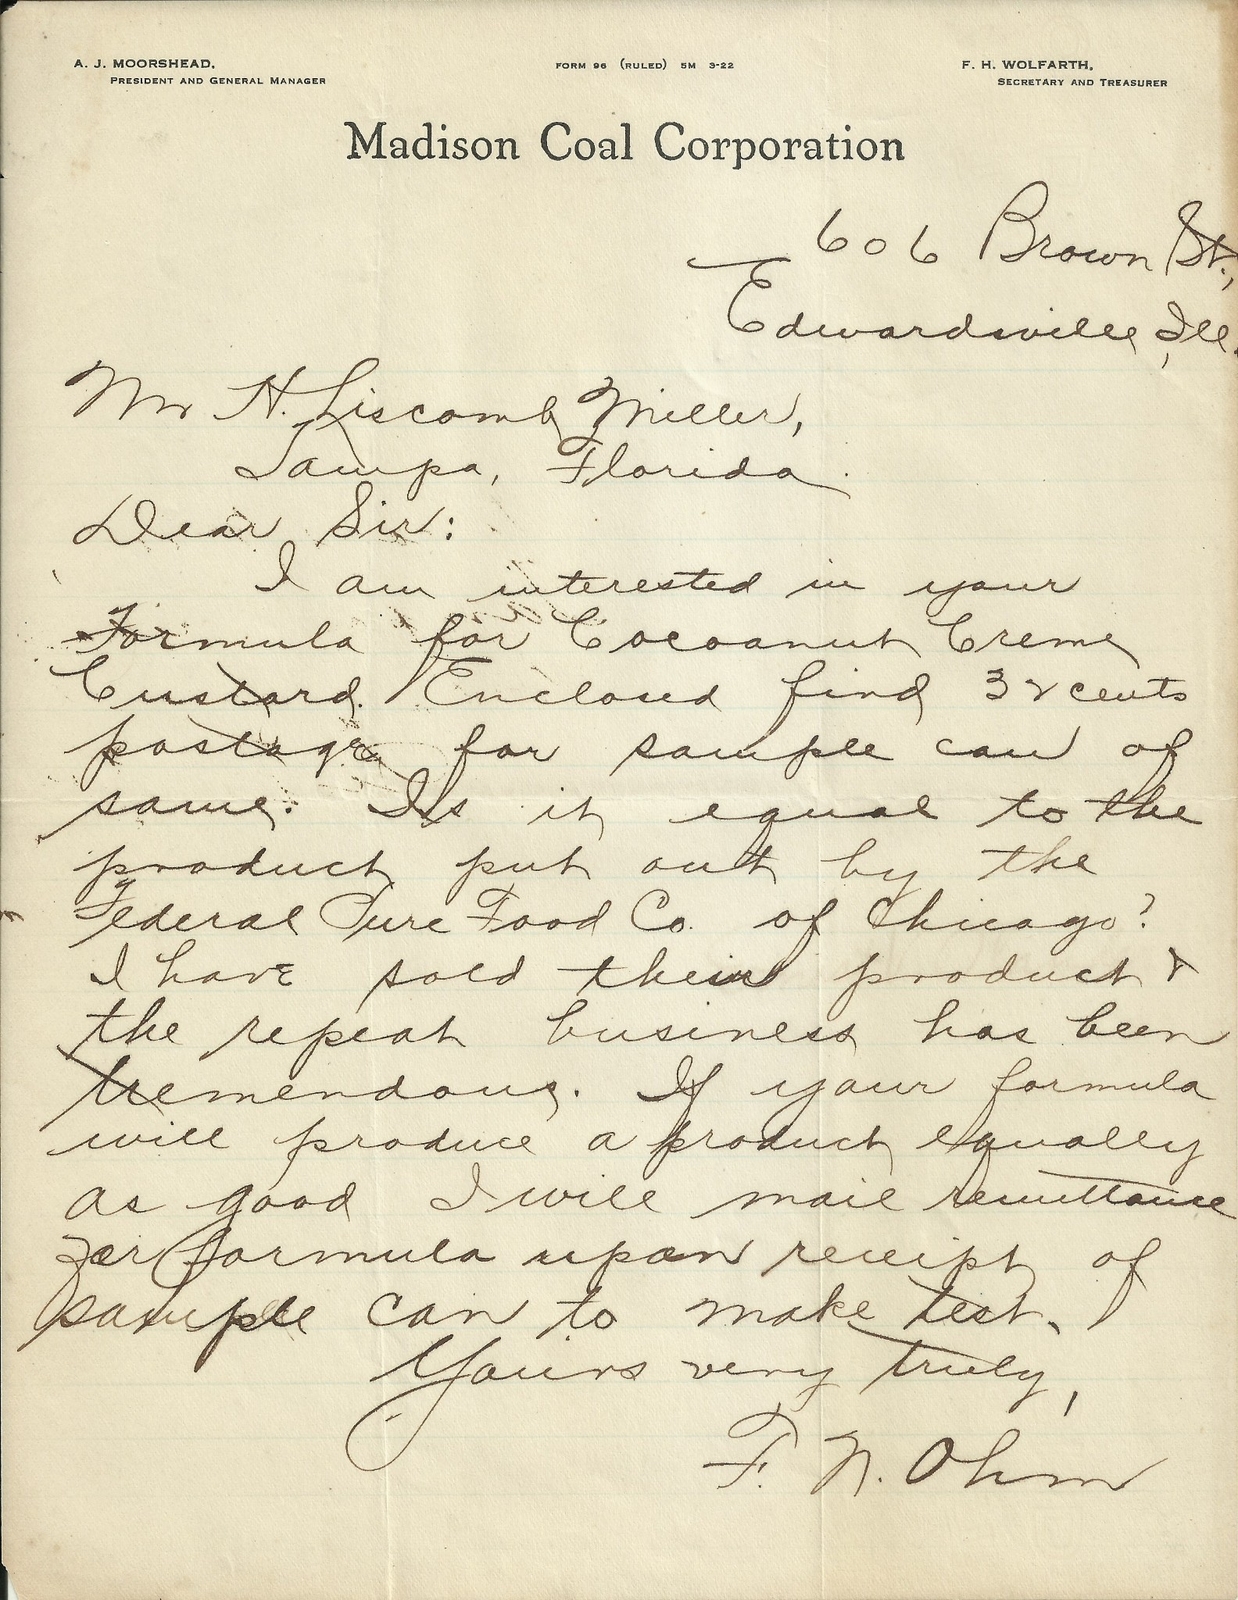 A. J. MOORSHEAD,
PRESIDENT AND GENERAL MANAGER
FORM 96 (RULED) 5M 3-22
F. H. WOLFARTH,
SECRETARY AND TREASURER
Madison Coal Corporation
606 Brown St.,
Edwardsville, Ill.
Mr H. Liscomb Miller,
Tampa, Florida.
Dear Sir:
I am interested in your
Formula for Cocoanut Creme
Custard. Enclosed find 32 cents
postage for sample can of
same. Is it equal to the
product put out by the
Federal Pure Food Co. of Chicago?
I have sold their product &
the repeat business has been
tremendous. If your formula
will produce a product equally
as good I will mail remittance
for formula upon receipt of
sample can to make test.
Yours very truly,
F. N. Ohm